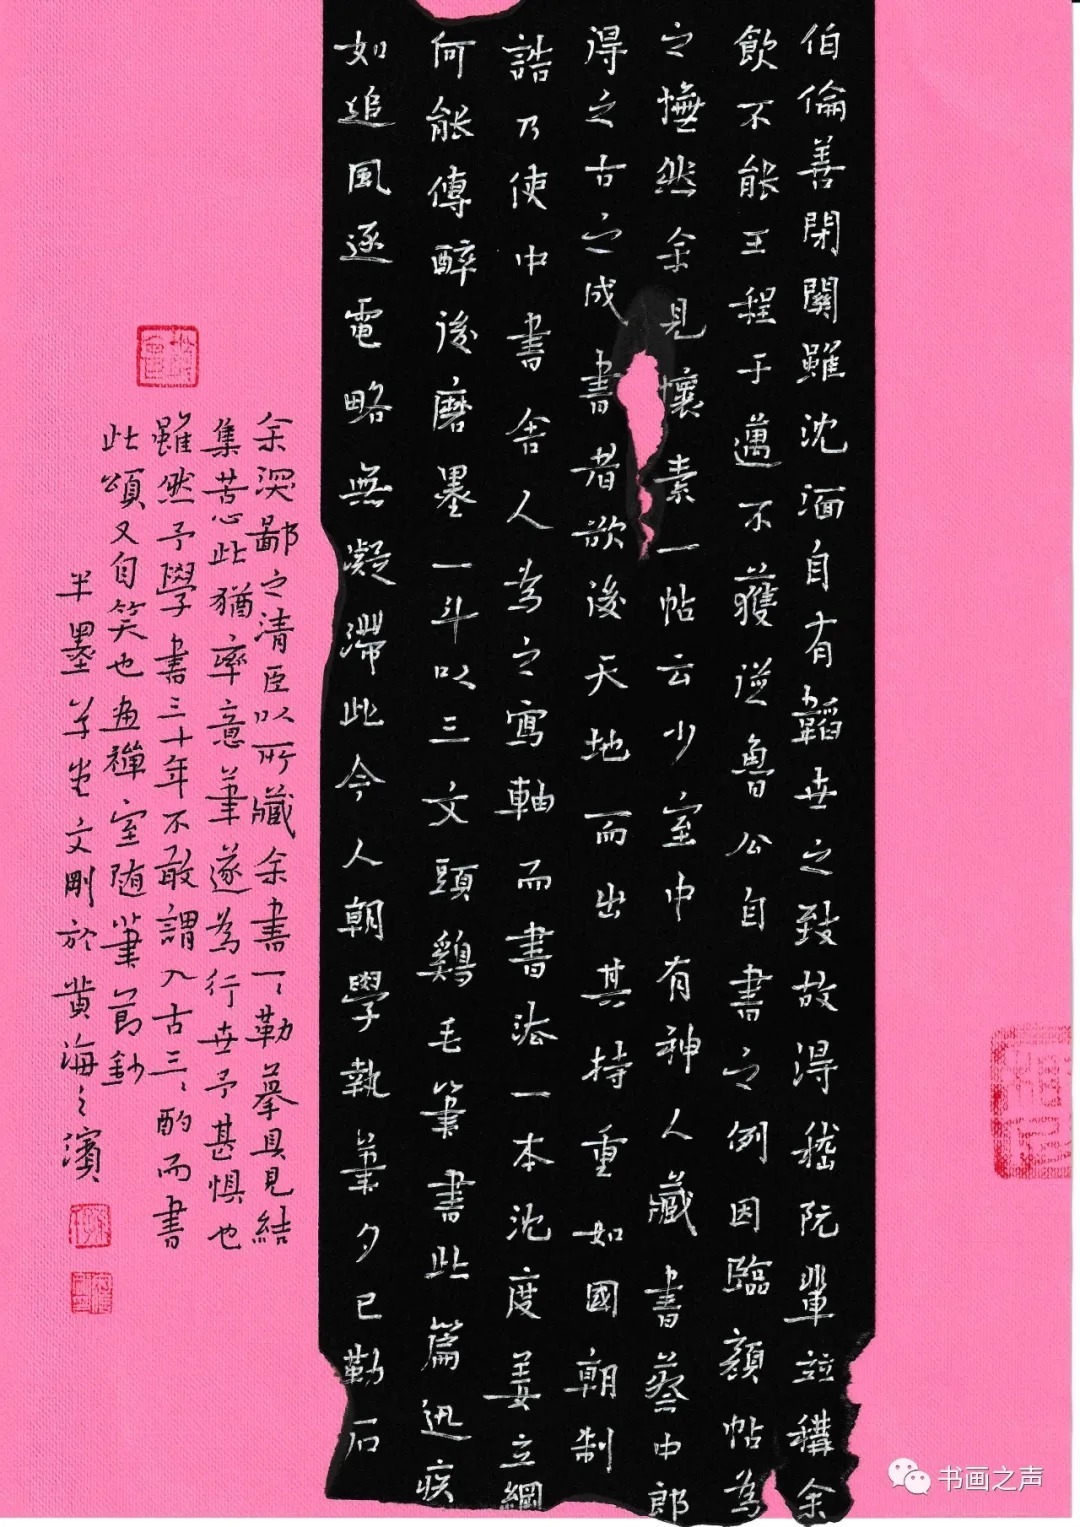 伯倫善閉關雖沈湎自有韜世之致故得嵇阮輩並稱余
飲不能王程于邁不獲從魯公自書之例因臨顏帖為
之憮然余見懷素一帖云少室中有神人藏書蔡中郎
得之古之成書者欲後天地而出其持重如國朝制
誥乃使中書舍人為之寫軸而書法一本沈度姜立綱
何能傳醉後磨墨一斗以三文頭鷄毛筆書此篇迅疾
如追風逐電略無凝滯此今人朝學執筆夕已勒石
余深鄙之清臣以所藏余書一、勒摹具見結
集苦心此猶率意筆遂為行世予甚惧也
雖然予學書三十年不敢謂入古三、酌而書
此頌又自笑也畫禪室随筆節鈔
半墨草堂文剛於黄海之濱
书画之声